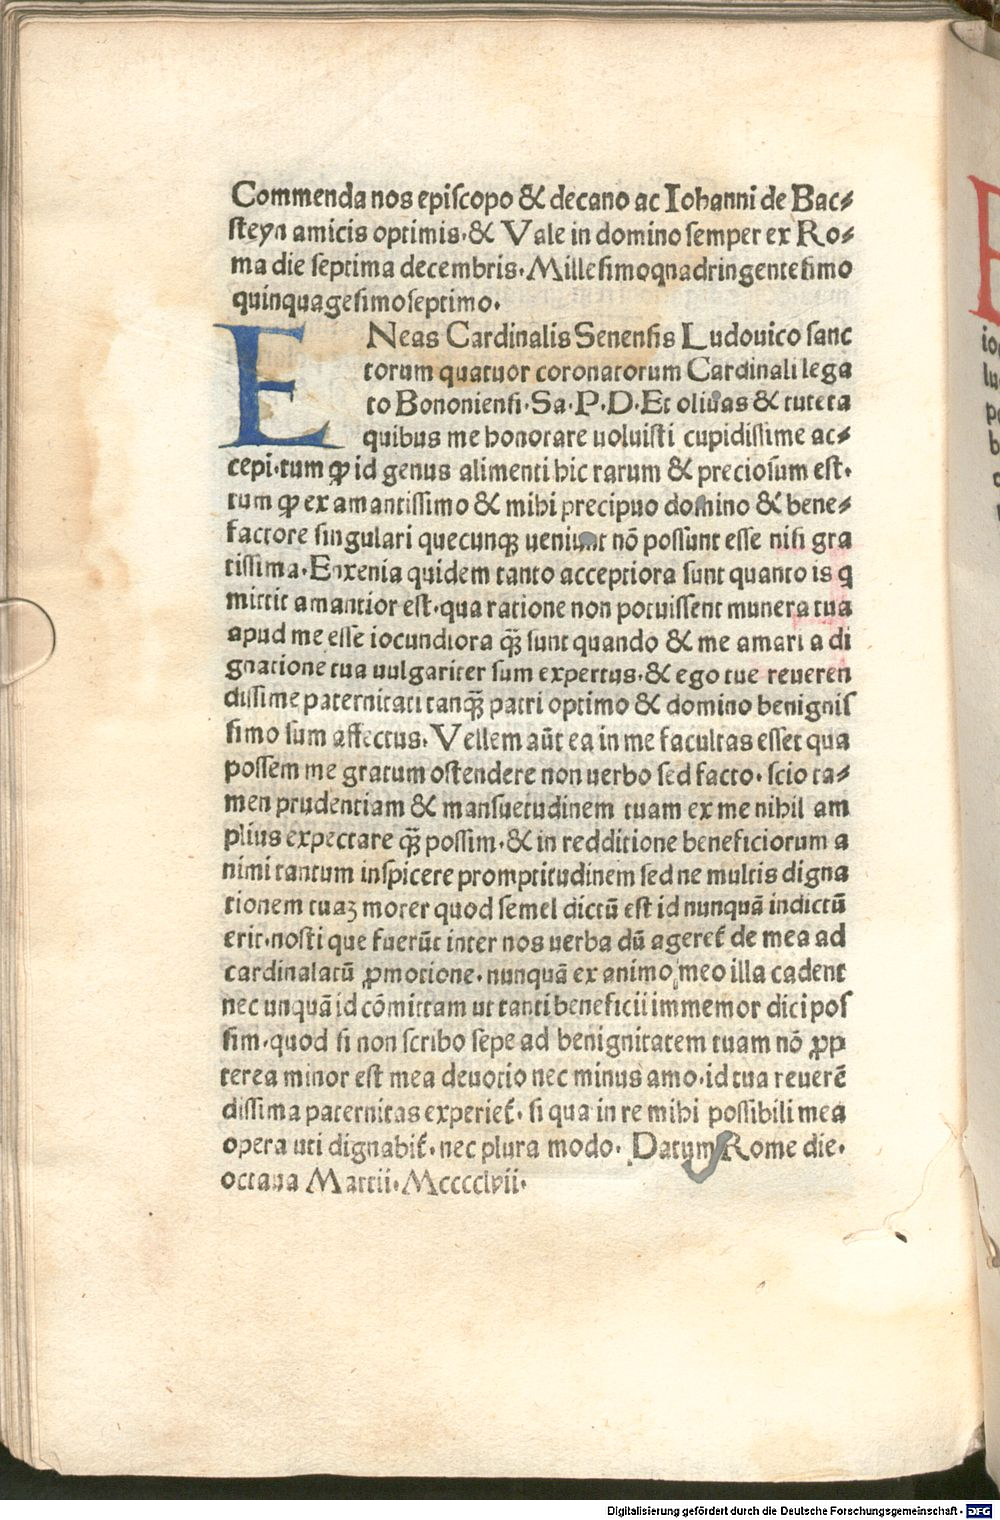 Commenda nos episcopo & decano ac Iohanni de Bac⸗
steyn amicis optimis.& Vale in domino semper ex Ro⸗
ma die septima decembris.Millesimoquadringentesimo
quinquagesimoseptimo.
ENeas Cardinalis Senensis Ludouico sanc
torum quatuor coronatorum Cardinali lega
to Bononiensi.Sa.P.D.Et oliuas & tuteta
quibus me honorare uoluisti cupidissime ac⸗
cepi.tum ꝙ id genus alimenti hic rarum & preciosum est.
tum ꝙ ex amantissimo & mihi precipuo domino & bene⸗
factore singulari quecunqꝫ ueniunt nō possunt esse nisi gra
tissima.Enxenia quidem tanto acceptiora sunt quanto is q
mittit amantior est.qua ratione non potuissent munera tua
apud me esse iocundiora qꝫ̄ sunt quando & me amari a di
gnatione tua uulgariter sum expertus.& ego tue reueren
dissime paternitati tanqꝫ̄ patri optimo & domino benignis
simo sum affectus.Vellem aūt ea in me facultas esset qua
possem me gratum ostendere non uerbo sed facto.scio ta⸗
men prudentiam & mansuetudinem tuam ex me nihil am
plius expectare qꝫ̄ possim.& in redditione beneficiorum a
nimi tantum inspicere promptitudinem sed ne multis digna
tionem tuaꝫ morer quod semel dictū est id nunquā indictū
erit.nosti que fuerūt inter nos uerba dū ageret̃ de mea ad
cardinalatū ꝓmotione.nunquā ex animo meo illa cadent
nec unquā id cōmittam ut tanti beneficii immemor dici pos
sim.quod si non scribo sepe ad benignitatem tuam nō ꝓp
terea minor est mea deuotio nec minus amo.id tua reuerē
dissima paternitas experiet̃. si qua in re mihi possibili mea
opera uti dignabit̃.nec plura modo. Datum Rome die.
octaua Martii.Mcccclvii.
Digitalisierung gefördert durch die Deutsche Forschungsgemeinschaft - DFG